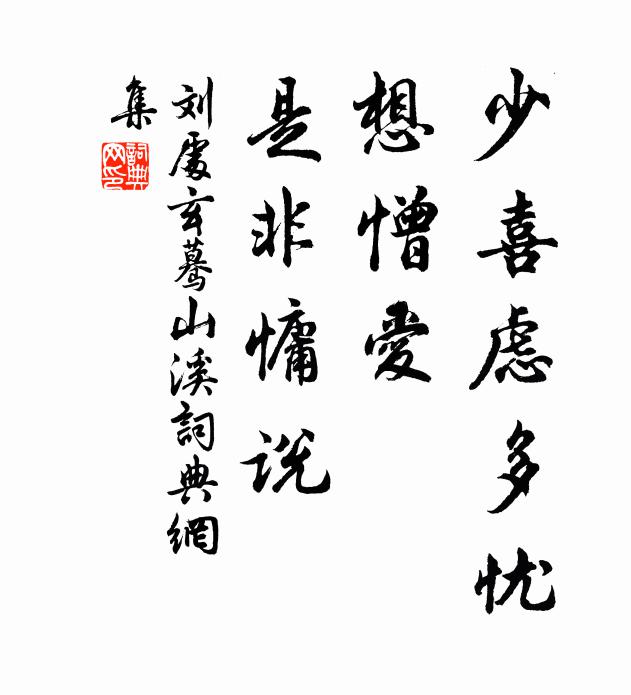 少喜虑多忧
想憎愛
是非慵说
刘處玄驀山溪詞典網
集
詞典
网印